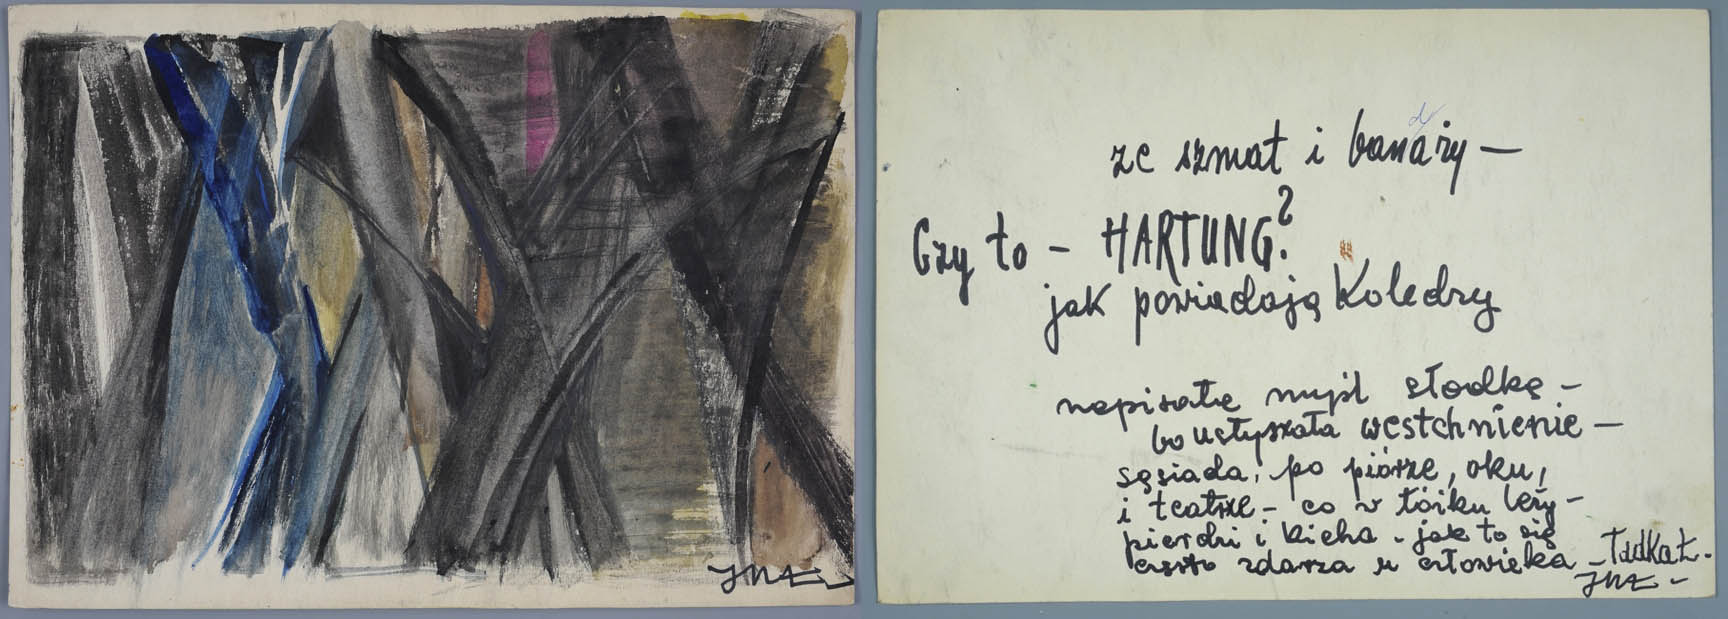 ze szmat i banaży –
d
Czy to – HARTUNG?
jak powiadają Koledzy
napisałę myśl słodkę –
bo usłyszała westchnienie –
sąsiada, po piórze, oku,
i teatrze – co w łóżku leży –
pierdzi i kicha – jak to się
często zdarza u człowieka – TadKa Ł.